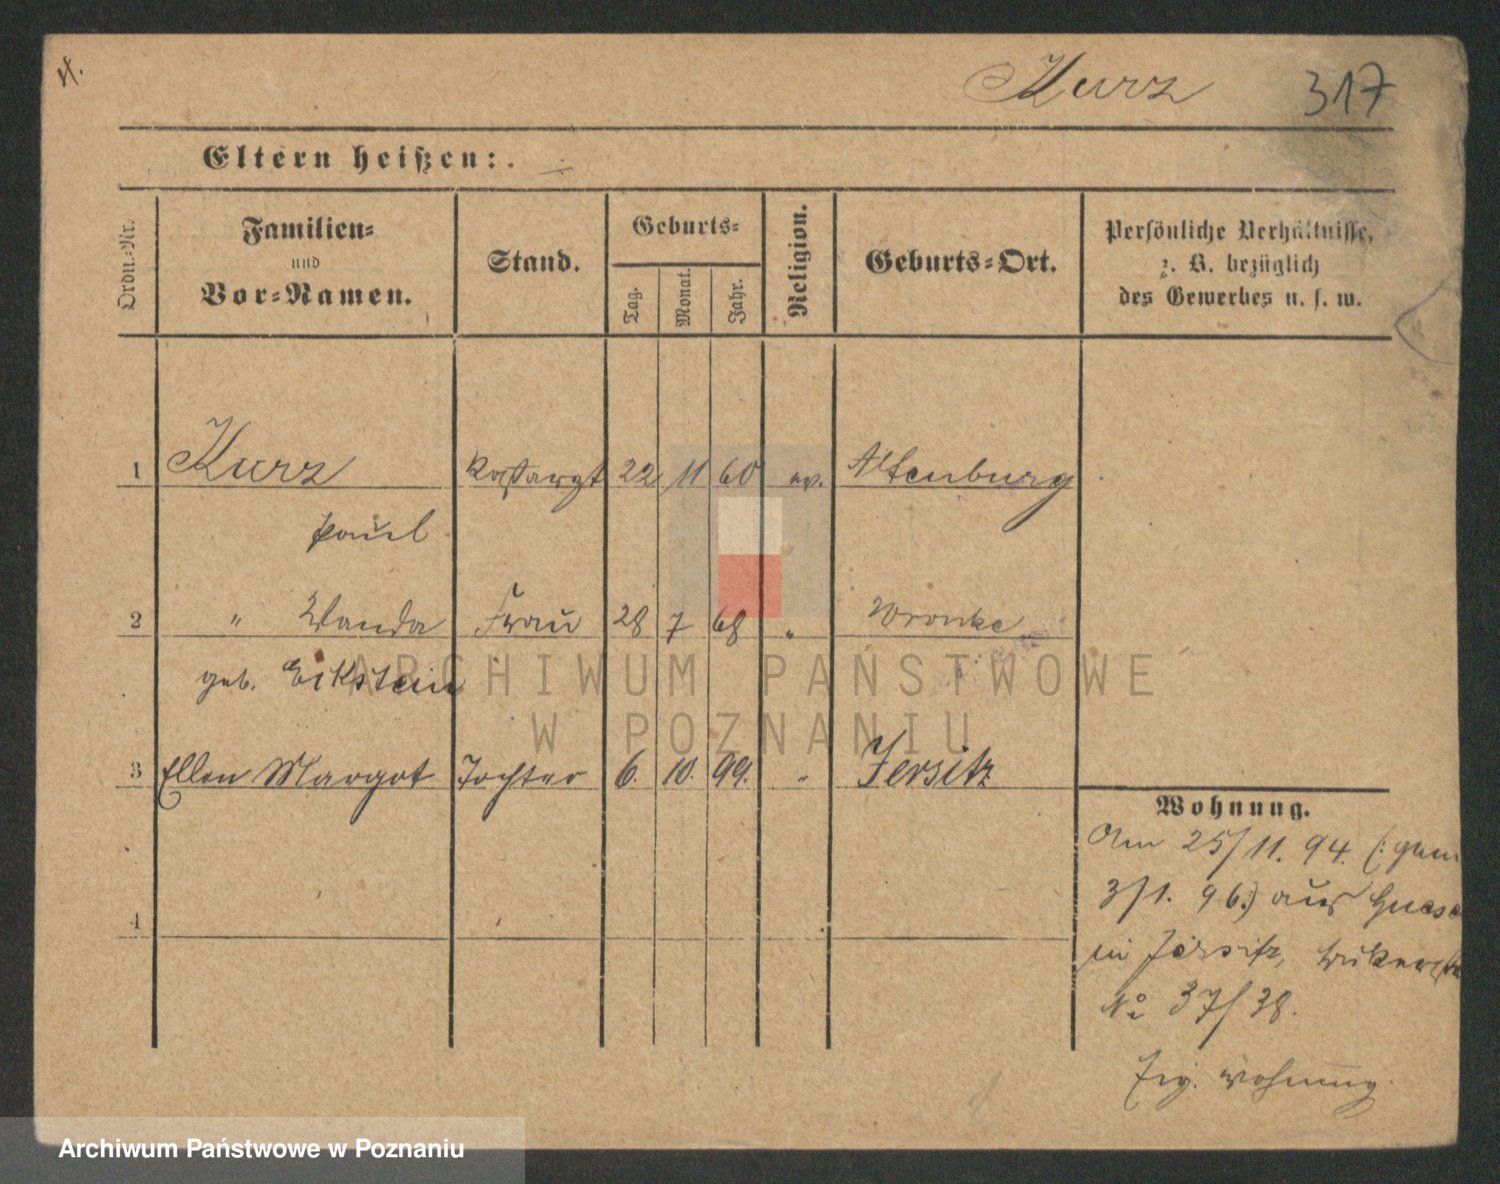 Kurz 317
Eltern heißen:.
Ordn.-Nr.
Familien-
und
Vor-Namen.
Stand.
Geburts-
Tag.
Monat.
Jahr.
Religion.
Geburts-Ort.
Persönliche Verhältnisse,
z. B. bezüglich
des Gewerbes u. s. w.
1 Kurz Roßarzt 22 11 60 ev. Altenburg
Paul
2 " Wanda Frau 28 7 68 " Wronke
geb. Eckstein
3 Ellen Margot Tochter 6. 10. 99. " Jersitz
Wohnung.
Am 25/11. 94. (: gem
3/1. 96:) aus Gnese
in Jersitz,
No 37/38.
4
Eig. Wohnung.
ARCHIWUM PAŃSTWOWE
W POZNANIU
Archiwum Państwowe w Poznaniu